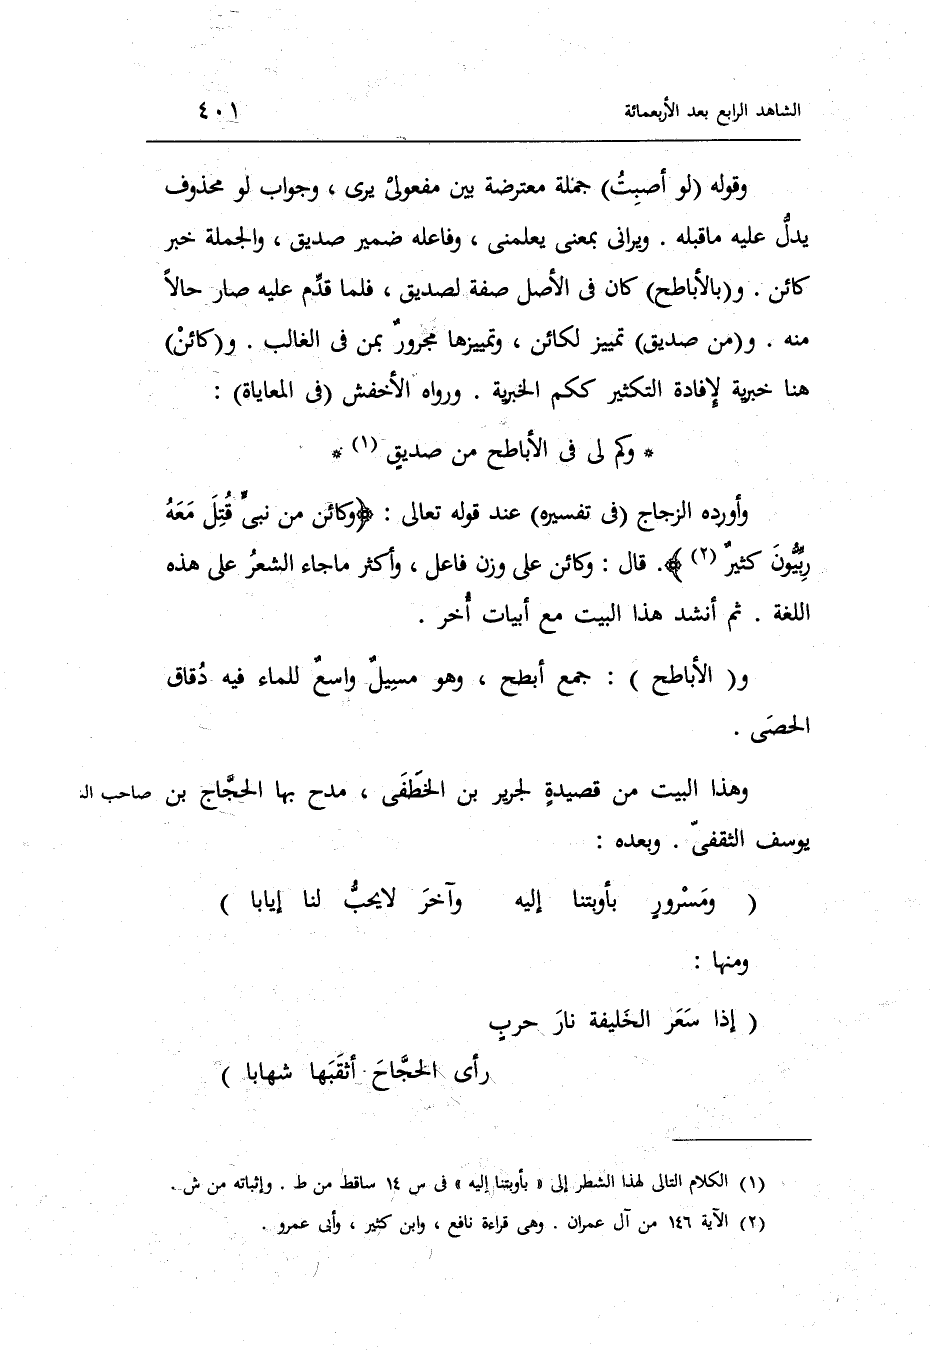 الشاهد الرابع بعد الأربعمائة ٤٠١
وقوله (لو أصبِتُ) جملة معترضة بين مفعولىْ يرى ، وجواب لو محذوف
يدلُّ عليه ماقبله . ويرانى بمعنى يعلمنى ، وفاعله ضمير صديق ، والجملة خبر
كائن . و(بالأباطح) كان فى الأصل صفة لصديق ، فلما قدِّم عليه صار حالاً
منه . و(من صديق) تمييز لكائن ، وتمييزها مجرورٌ بمن فى الغالب . و(كائنْ)
هنا خبرية لإفادة التكثير ككم الخبرية . ورواه الأخفش (فى المعاياة) :
* وكم لى فى الأباطح من صديقٍ (١) *
وأورده الزجاج (فى تفسيره) عند قوله تعالى : ﴿وكائن من نبىٍّ قُتِلَ مَعَهُ
رِبِّيُّونَ كثيرٌ (٢) ﴾. قال : وكائن على وزن فاعل ، وأكثر ماجاء الشعرُ على هذه
اللغة . ثم أنشد هذا البيت مع أبيات أُخر .
و( الأباطح ) : جمع أبطح ، وهو مسِيلٌ واسعٌ للماء فيه دُقاق
الحصَى .
وهذا البيت من قصيدةٍ لجرير بن الخَطَفَى ، مدح بها الحجَّاج بن صاحب الـ
يوسف الثقفىّ . وبعده :
( ومَسْرورٍ بأوبتنا إليه وآخرَ لايحبُّ لنا إيابا )
ومنها :
( إذا سَعَر الخَليفة نارَ حربٍ
رأى الحجَّاجَ أثقَبَها شهابا )
(١) الكلام التالى لهذا الشطر إلى « بأوبتنا إليه » فى س ١٤ ساقط من ط . وإثباته من ش .
(٢) الآية ١٤٦ من آل عمران . وهى قراءة نافع ، وابن كثير ، وأبى عمرو .